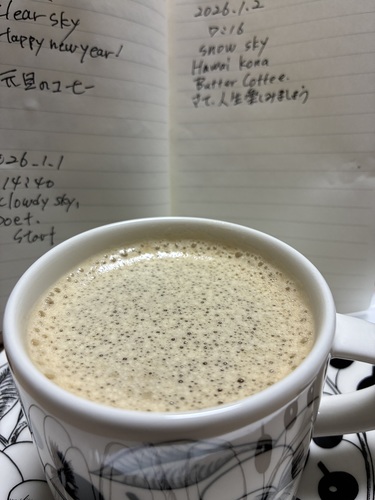 clear sky
Happy new year!
元旦のコーヒー
26.1.1
14:40
cloudy sky,
poet.
Start
2026.1.2
7:16
snow sky
Hawai kona
Butter Coffee.
さて、人生楽しみましょう